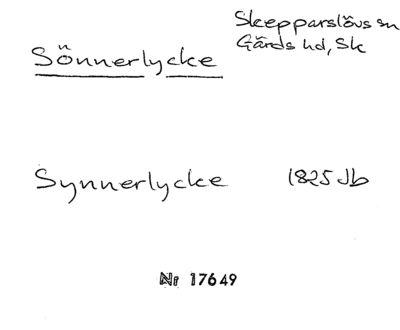 Sönnerlycke
Skepparslövs sn
Gärds hd, Sk
Synnerlycke 1825 Jb
Nr 17649